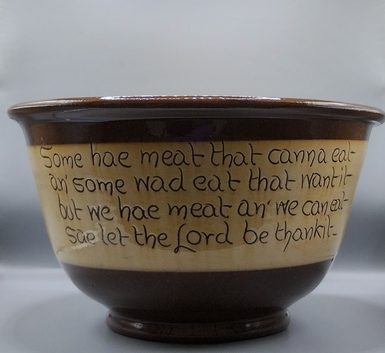 Some hae meat that canna eat
an' some wad eat that want it
but we hae meat an' we can eat
sae let the Lord be thankit